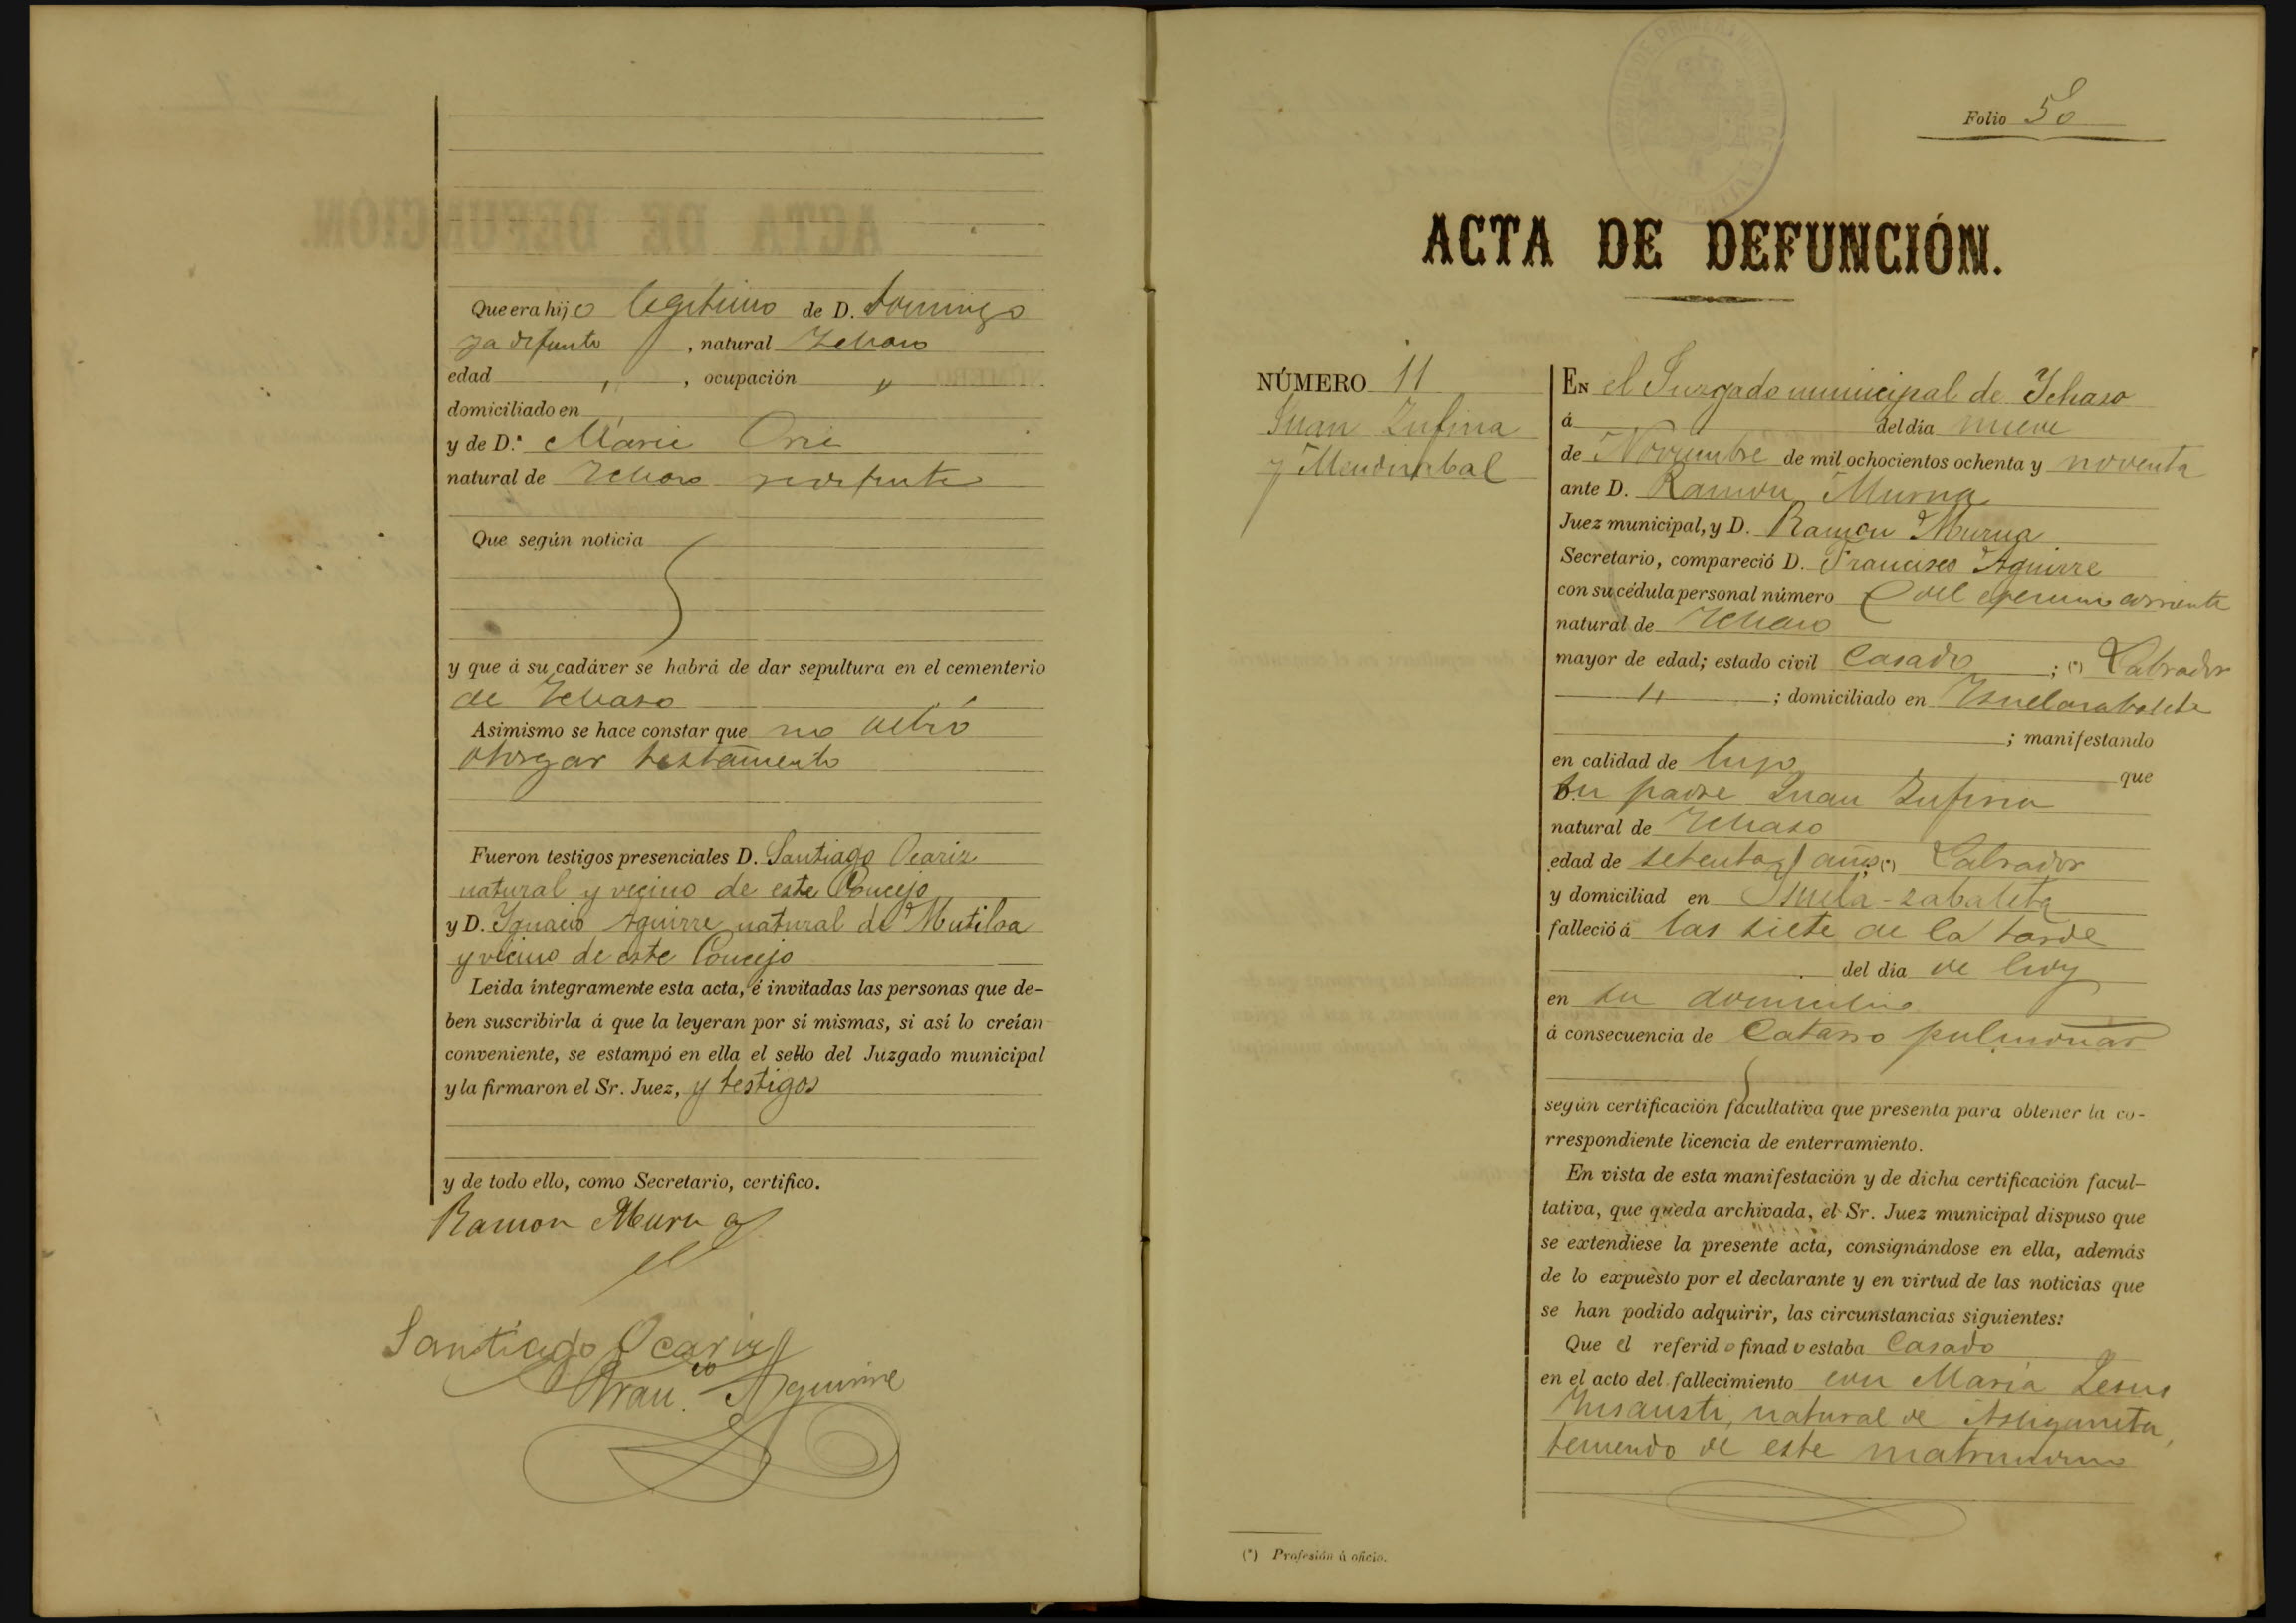 Que era hijo legitimo de D. Domingo
ya difunto , natural Ichaso
edad " , ocupación "
domiciliado en
y de D.ª Maria Oria
natural de Ichaso
Que según noticia
y que á su cadáver se habrá de dar sepultura en el cementerio
de Ichaso
Asimismo se hace constar que no debió
otorgar testamento
Fueron testigos presenciales D. Santiago Ocariz
natural y vecino de este Concejo
y D. Ygnacio Aguirre natural de Mutiloa
y vecino de este Concejo
Leida íntegramente esta acta, é invitadas las personas que de-
ben suscribirla á que la leyeran por sí mismas, si así lo creían
conveniente, se estampó en ella el sello del Juzgado municipal
y la firmaron el Sr. Juez, y testigos
y de todo ello, como Secretario, certifico.
Ramon Murua
Santiago Ocariz
Fran.co Aguirre
Folio 50
ACTA DE DEFUNCIÓN.
NÚMERO 11
Juan Zufiria
y Mendizabal
EN el Juzgado municipal de Ychaso
á del dia nueve
de Noviembre de mil ochocientos ochenta y noventa
ante D. Ramon Murua
Juez municipal, y D. Ramon Murua
Secretario, compareció D. Francisco Aguirre
con su cédula personal número del corriente
natural de Ichaso
mayor de edad; estado civil Casado ; (*) Labrador
" ; domiciliado en
; manifestando
en calidad de que
su padre Juan Zufiria
natural de Ichaso
edad de setenta años (*) Labrador
y domiciliad en Ysuela-zabaleta
falleció á las siete de la tarde
del dia de hoy
en su domicilio
á consecuencia de Catarro pulmonar
según certificación facultativa que presenta para obtener la co-
rrespondiente licencia de enterramiento.
En vista de esta manifestación y de dicha certificación facul-
tativa, que queda archivada, el Sr. Juez municipal dispuso que
se extendiese la presente acta, consignándose en ella, además
de lo expuesto por el declarante y en virtud de las noticias que
se han podido adquirir, las circunstancias siguientes:
Que el referido finado estaba Casado
en el acto del fallecimiento con Maria Jesus
Insausti, natural de Astigarreta,
teniendo de este matrimonio
(*) Profesión á oficio.